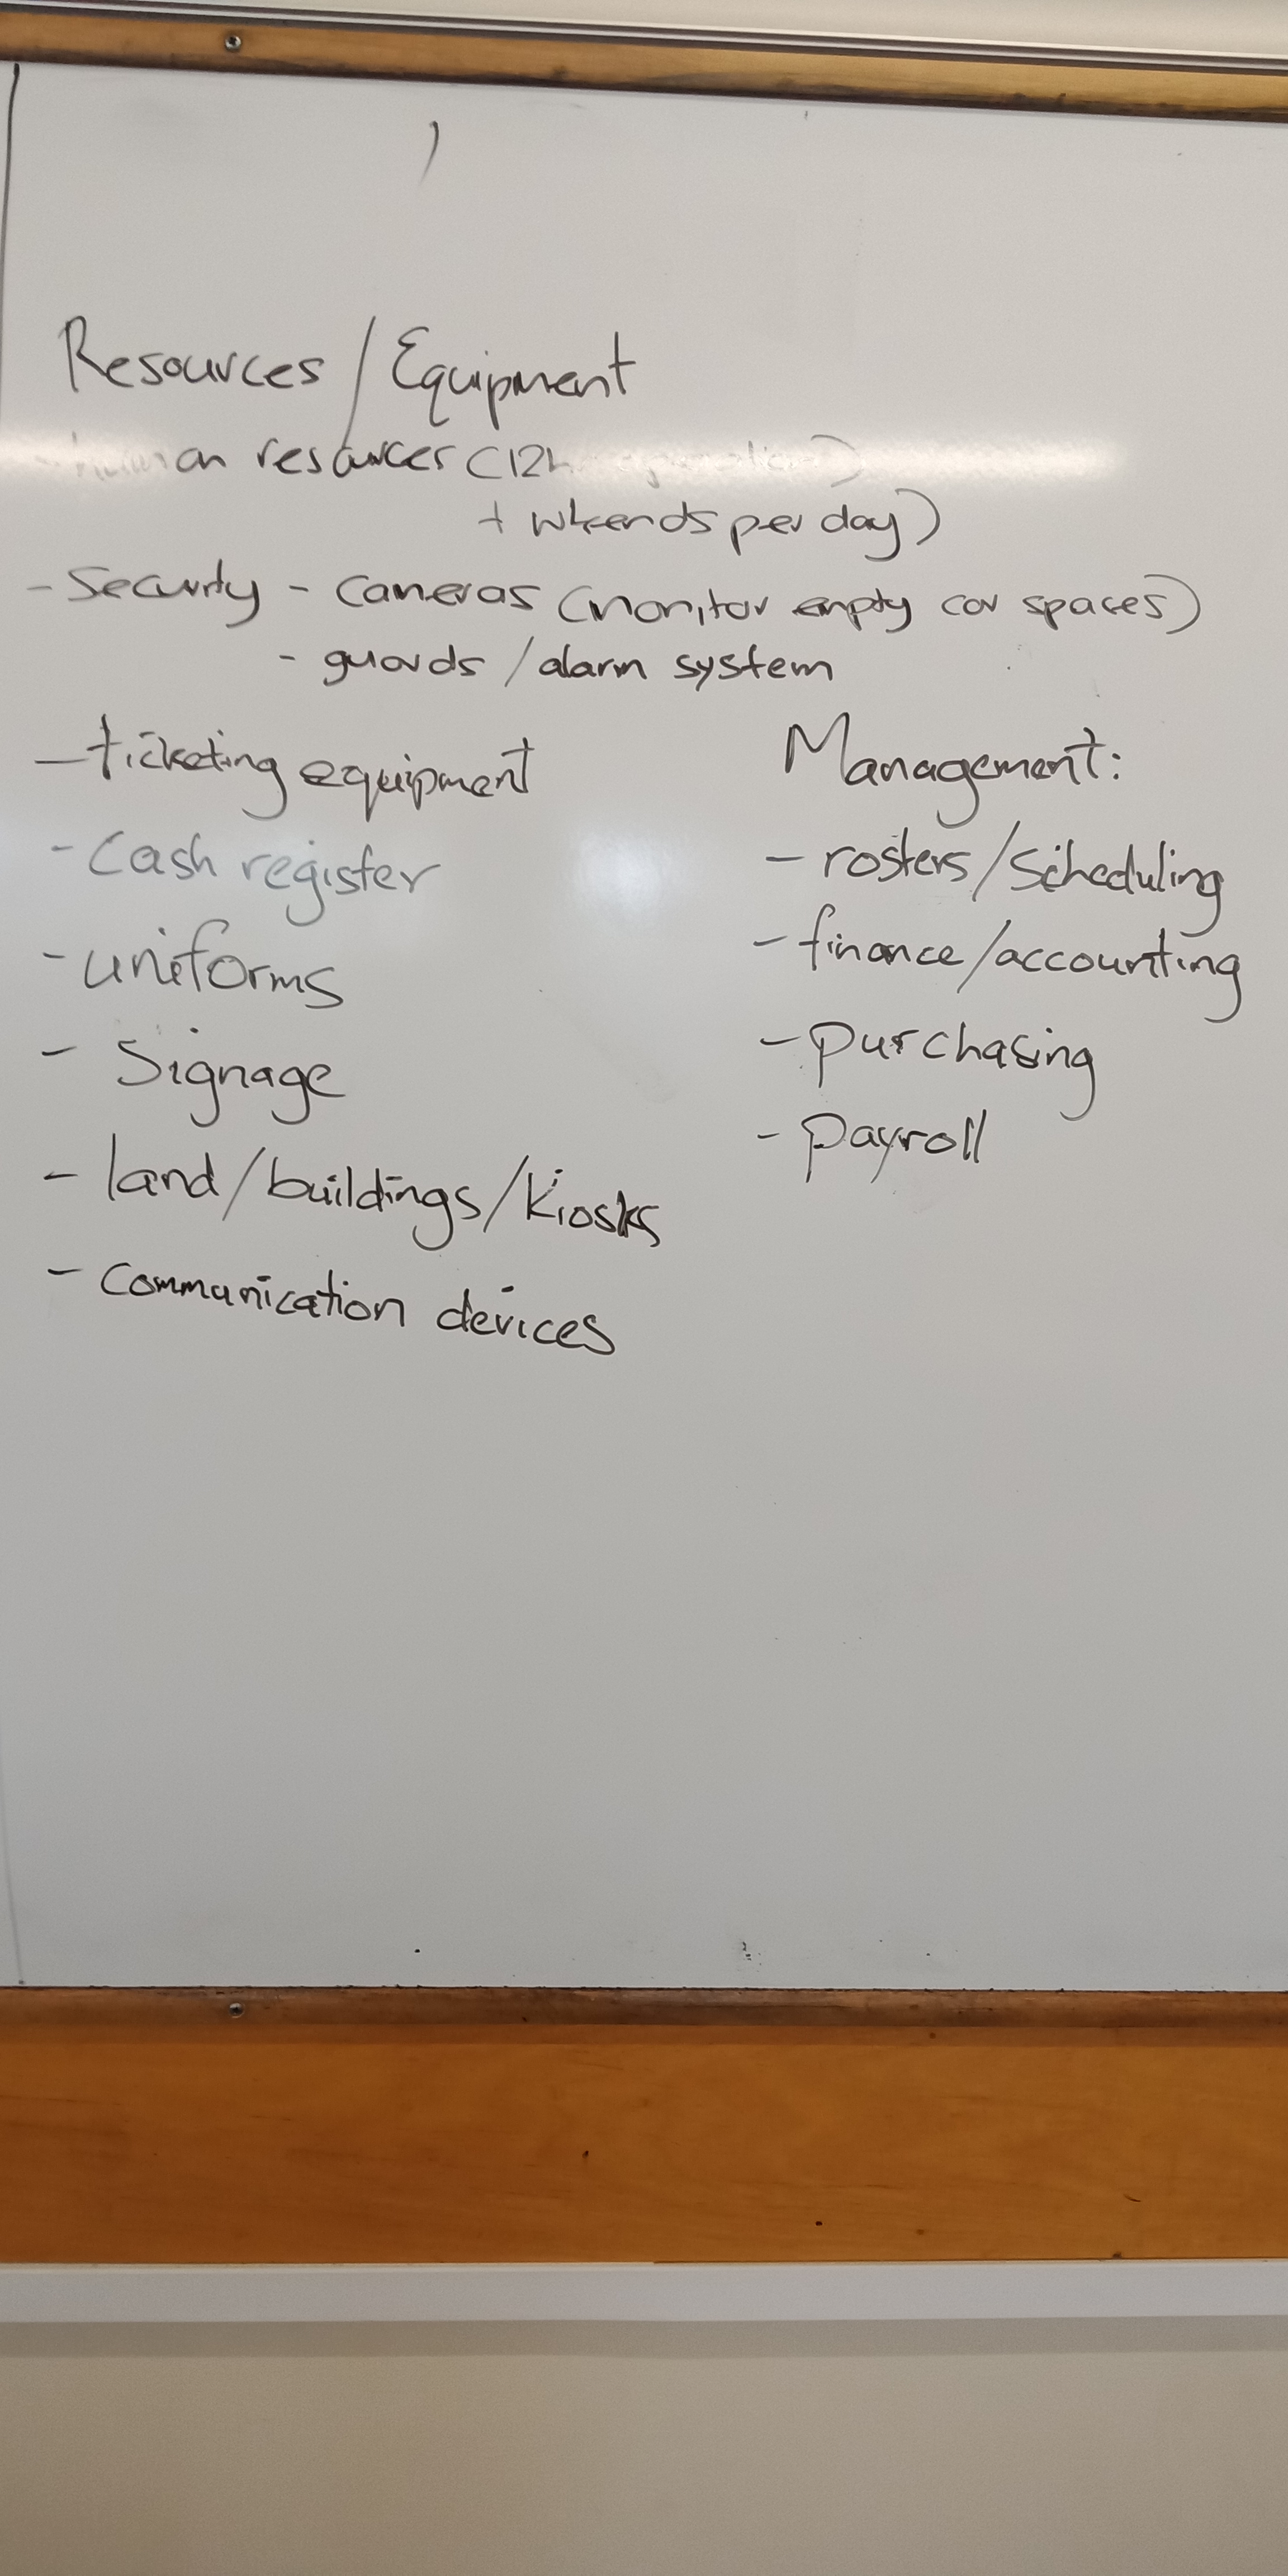 Resources / Equipment
- human resources (12h operation)
+ wkends per day)
- Security - cameras (monitor empty car spaces)
- guards / alarm system
- ticketing equipment
- Cash register
- uniforms
- Signage
- land/buildings/kiosks
- Communication devices
Management:
- rosters/scheduling
- finance/accounting
- purchasing
- payroll